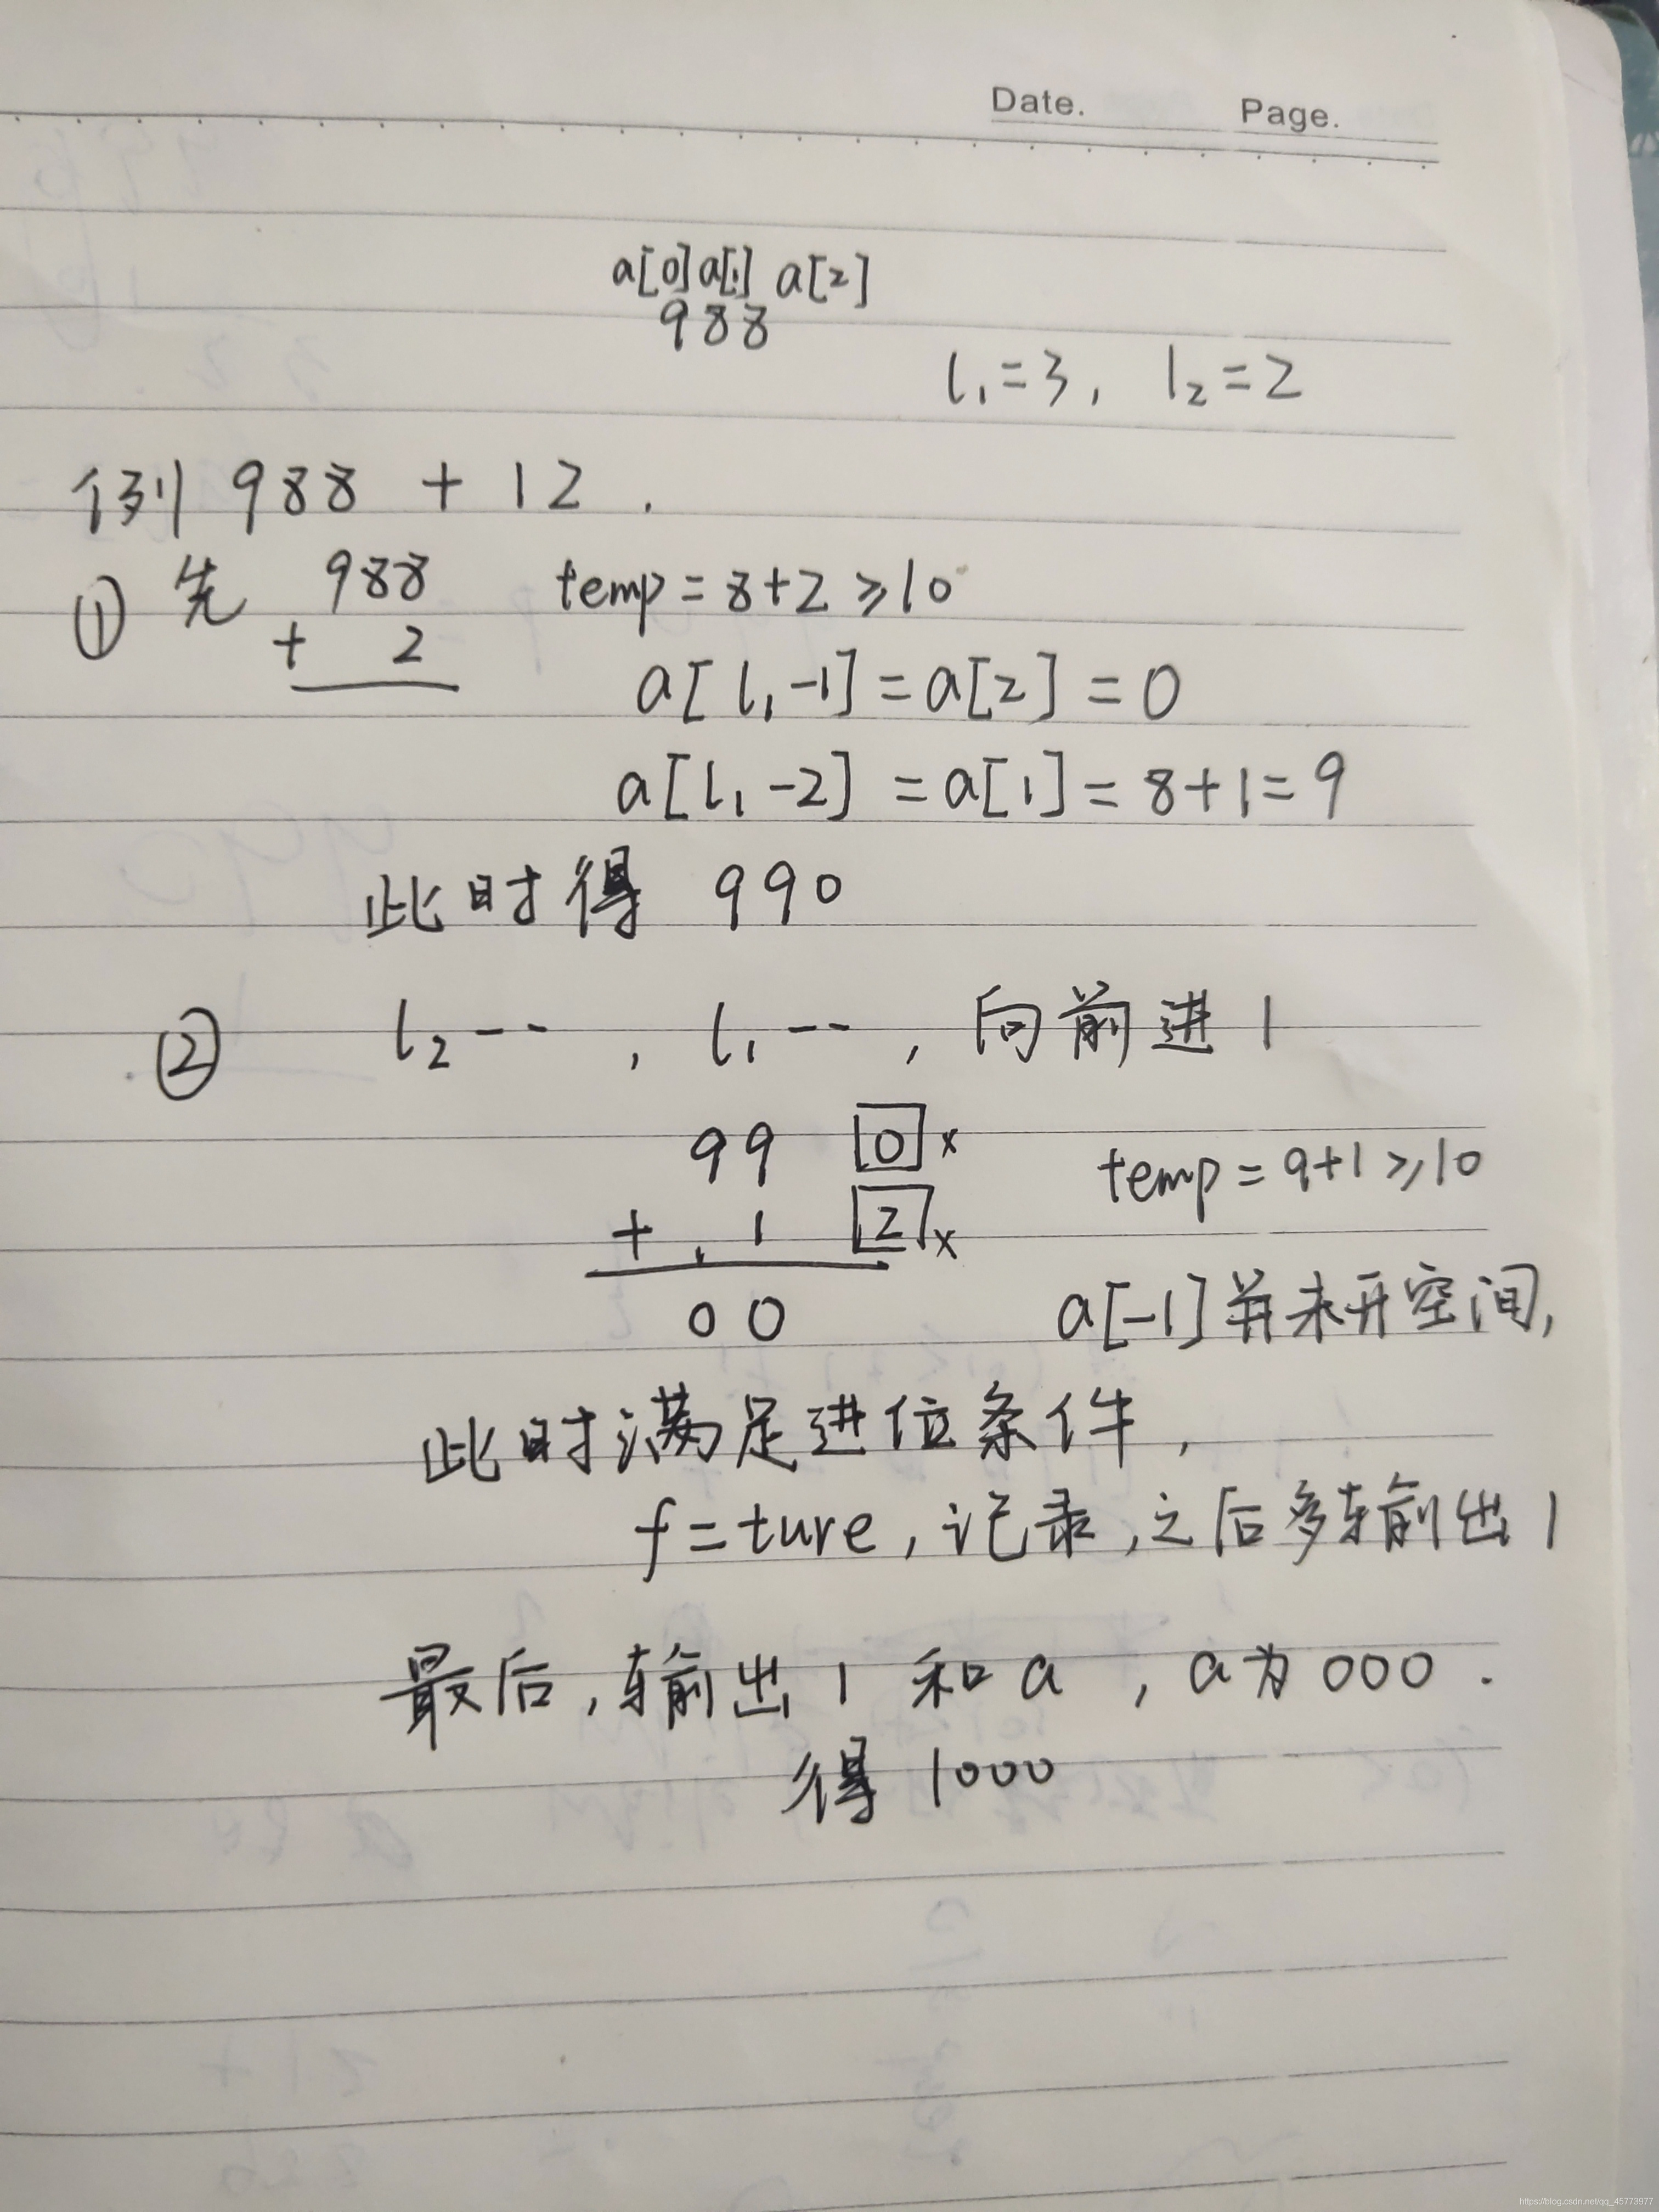 Date. Page.
a[0] a[1] a[2]
988
l₁=3, l₂=2
例 988 + 12 .
① 先 988 temp = 8+2 ⩾10
+ 2
a[l₁-1] = a[2] = 0
a[l₁-2] = a[1] = 8+1=9
此时得 990
② l₂-- , l₁-- , 向前进1
99 0 x
temp = 9+1 ⩾10
+ . 1 2 x
00
a[-1]并未开空间,
此时满足进位条件,
f=ture,记录,之后多输出1
最后,输出1和a , a为000 .
得 1000
https://blog.csdn.net/qq_45773977